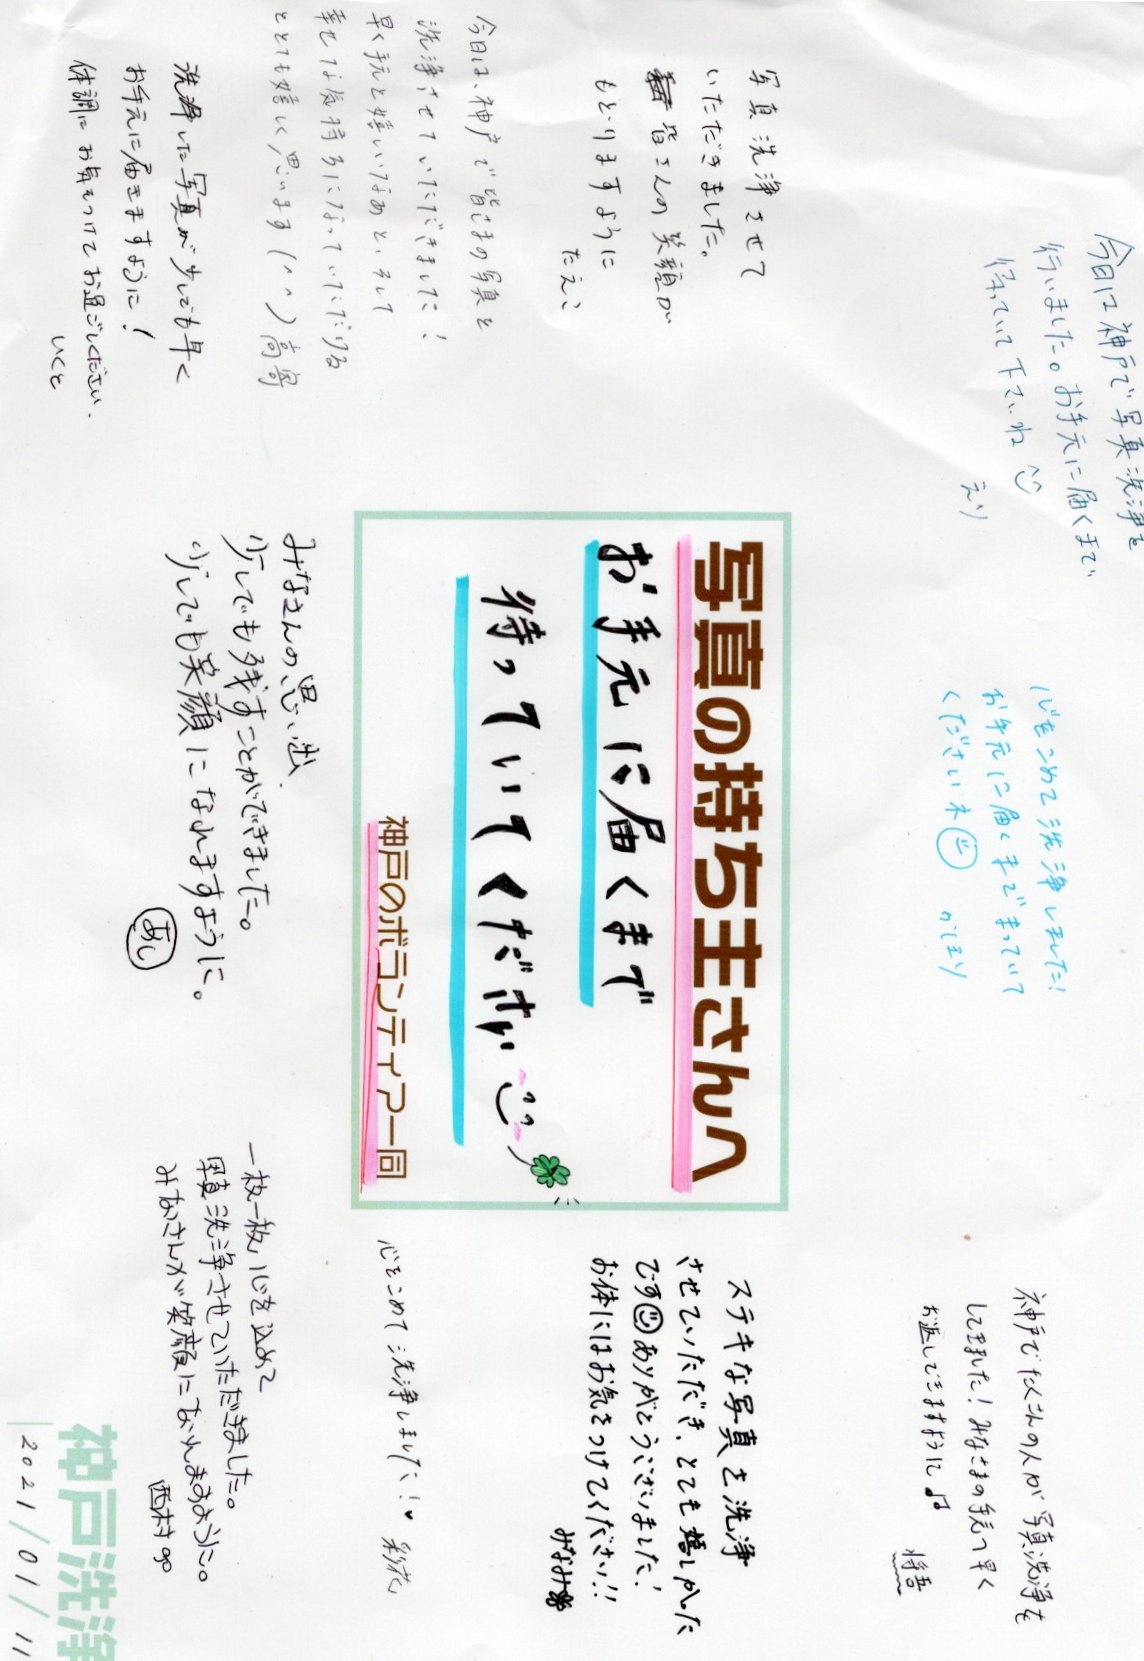 写真の持ち主さんへ
お手元に届くまで
待っていてください
神戸のボランティア一同
今日は神戸で写真洗浄を
行いました。お手元に届くまで
待っていて下さいね
えり
心をこめて洗浄しました!
お手元に届くまでまっていて
くださいネ
神戸でたくさんの人が写真洗浄を
してました!みなさまの手元へ早く
お返しできますように♫
将吾
写真洗浄させて
いただきました。
皆さんの笑顔が
もどりますように
たえこ
ステキな写真を洗浄
させていただき、とても嬉しかった
です ありがとうございました!
お体にはお気をつけてください!!
みなみ
今日は、神戸で皆さまの写真を
洗浄させていただきました!
幸せな気持ちになっていただける
ととても嬉しく思います(^^)
心をこめて洗浄しました!♥ 彩花
洗浄した写真が少しでも早く
お手元に届きますように!
体調にお気をつけてお過ごしください。
いくと
みなさんの思い出、
少しでも残すことができました。
少しでも笑顔になれますように。
あし
一枚一枚心を込めて
写真洗浄させていただきました。
みなさんが笑顔になれますように。
西村
神戸洗浄
2021/01/11